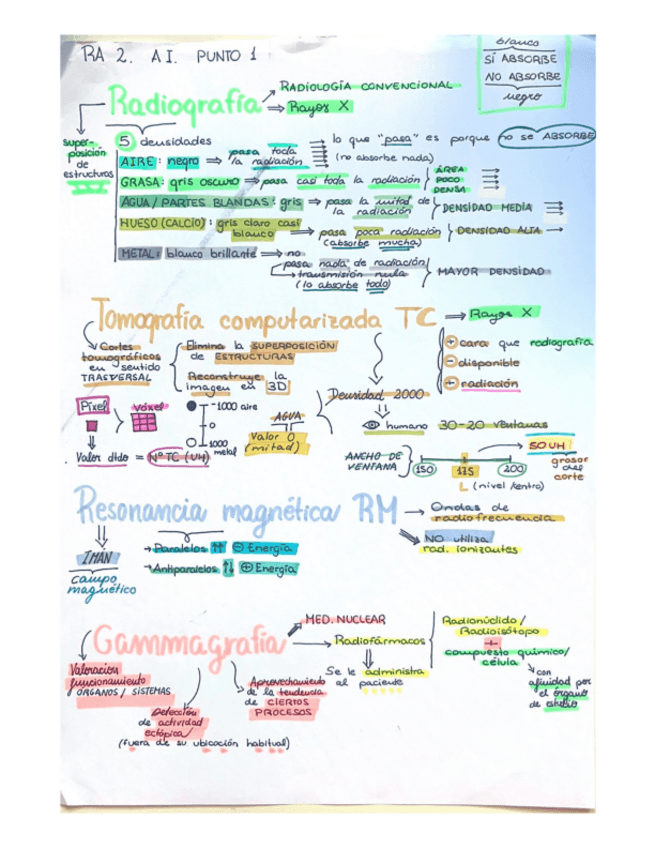 RA 2. AI. PUNTO 1
blanco
SÍ ABSORBE
NO ABSORBE
negro
Radiografía
→ RADIOLOGÍA CONVENCIONAL
⇒ Rayos X
super-
posición
de
estructuras
5 densidades
lo que "pasa" es porque no se ABSORBE
AIRE: negro ⇒ pasa toda
la radiación
(no absorbe nada)
GRASA: gris oscuro ⇒ pasa casi toda la radiación
ÁREA
POCO
DENSA
AGUA/PARTES BLANDAS: gris ⇒ pasa la mitad de
la radiación
DENSIDAD MEDIA
HUESO (CALCIO): gris claro casi
blanco
⇒ pasa poca radiación
(absorbe mucha)
DENSIDAD ALTA
METAL: blanco brillante ⇒ no
pasa nada de radiación
transmisión nula
(lo absorbe todo)
MAYOR DENSIDAD
Tomografía computarizada TC
⇒ Rayos X
Cortes
tomográficos
en sentido
TRASVERSAL
Elimina la SUPERPOSICIÓN
de ESTRUCTURAS
Reconstruye la
imagen en 3D
+ cara que radiografía
- disponible
+ radiación
Píxel
Vóxel
Valor dtdo = Nº TC (UH)
-1000 aire
0
1000
metal
AGUA
Valor 0
(mitad)
Densidad 2000
humano 30-20 ventanas
ANCHO DE
VENTANA
150
175
200
L (nivel/centro)
50 UH
grosor
del
corte
Resonancia magnética RM
→ Ondas de
radiofrecuencia
NO utiliza
rad. ionizantes
IMÁN
campo
magnético
→ Paralelos ↑↑ ⊖ Energía
→ Antiparalelos ↑↓ ⊕ Energía
Gammagrafía
MED. NUCLEAR
Radiofármacos
Se le administra
al paciente
Radionúclido/
Radioisótopo
+
compuesto químico/
célula
con
afinidad por
el órgano
de estudio
Valoración
funcionamiento
ÓRGANOS/SISTEMAS
Detección
de actividad
ectópica
(fuera de su ubicación habitual)
Aprovechamiento
de la tendencia
de CIERTOS
PROCESOS